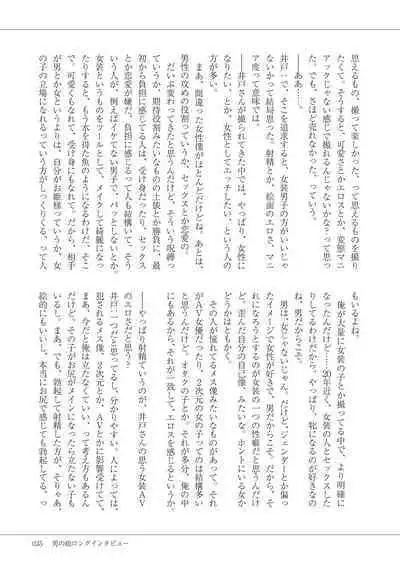 思えるもの、撮ってて楽しかった、って思えるものを撮り
たくて。そうすると、可愛さとかエロスとか、変態、マニ
アックじゃない感じで撮れるんじゃないかな?って思っ
た。でも、さほど売れなかった、っていう。
――ああ……。
井戸 で、そこを追求すると、女装男子の方がいいじゃ
ないかって結局思った。射精とか、絵面のエロさ、マニ
ア度って意味では。
――井戸さんが撮られてきた中では、やっぱり、女性に
なりたい、とか、女性としてエッチしたい、という人の
方が多い。
まあ、間違った女性像がほとんどだけどね。あとは、
男性の攻めの役割っていうか、セックスとか恋愛の。
だいぶ変わってきたと思うんだけど、そういう呪縛っ
ていうか、期待役割みたいなものの土俵とか勝負に、最
初から負担に感じてる人は、受け身だったり、セックス
とか恋愛が嫌だ、負担に感じるって人も結構いて、そう
いう人が、例えばイケてない男子で、パッとしないとか、
女装というものをツールとして、メイクして綺麗になっ
たりすると、もう水を得た魚のようになるわけだ、そこ
で。可愛くもなれて、受け身にもなれて。だから、相手
が男とか女というよりは、自分がお姫様っていうか、女
の子の立場になれるっていう方がしっくりくる、って人
もいるよね。
俺が大量に女装の子とか撮ってる中で、より明確に
なったんだけど――20年近く、女装の人とセックスした
りしてるわけだから、やっぱり、牝になるのが好きなの
ね、男だからこそ。
男は、女じゃないじゃん。だけど、ジェンダーとか偏っ
たイメージで女性が好きで、男だからこそ、だから、そ
れになろうとするのが女装の一つの性癖だと思うんだけ
ど、歪んだ自分の自己像、みたいな。ホントにいる女か
どうかはともかく。
その人が憧れてるメス像みたいなものがあって。それ
がAV女優だったり、2次元の女の子ってのは結構多い
と思うんだけど。オタクの子とか。それが多分、俺の中
にもあるから、それが一致して、エロスを感じるというか。
――やっぱり射精ていうのが、井戸さんの思う女装AV
のエロさだと思う?
井戸 一つだと思ってるし、分かりやすい。人によっては、
犯されるメス像、2次元とか、AVとかに影響受けてて、
まあ、今だと俺は立たなくていい、って考え方もあるん
だけど。その子がお尻がメインになったら立たない子も
いるし。まあ、でも、勃起して射精した方が、そりゃあ、
絵的にもいいし。本当にお尻で感じても勃起してる、っ
035 男の娘ロングインタビュー